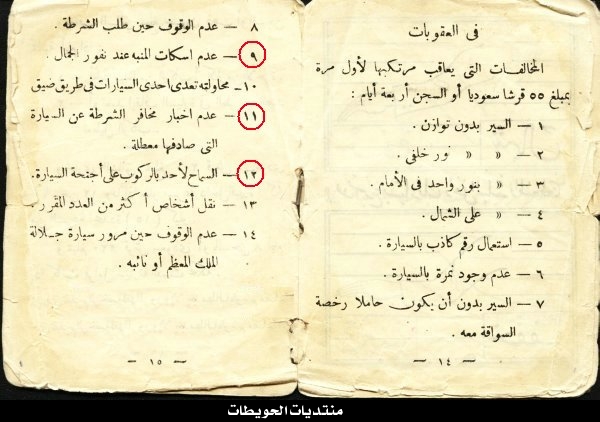 فى العقوبات
المخالفات التى يعاقب مرتكبها لأول مرة
بمبلغ ٥٥ قرشا سعوديا أو السجن أربعة أيام :
١ — السير بدون توازن .
٢ — « « نور خلفى .
٣ — « بنور واحد فى الأمام .
٤ — « على الشمال .
٥ — استعمال رقم كاذب بالسيارة .
٦ — عدم وجود نمرة بالسيارة .
٧ — السير بدون أن يكون حاملا رخصة
السواقة معه .
— ١٤ —
٨ — عدم الوقوف حين طلب الشرطة .
٩ — عدم اسكات المنبه عند نفور الجمال .
١٠ — محاولته تعدى احدى السيارات فى طريق ضيق
١١ — عدم اخبار مخافر الشرطة عن السيارة
التى صادفها معطلة .
١٢ — السماح لأحد بالركوب على أجنحة السيارة .
١٣ — نقل أشخاص أكثر من العدد المقرر .
١٤ — عدم الوقوف حين مرور سيارة جلالة
الملك المعظم أو نائبه .
— ١٥ —
منتديات الحويطات